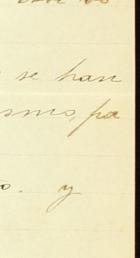 se han
smo, pa
o. y